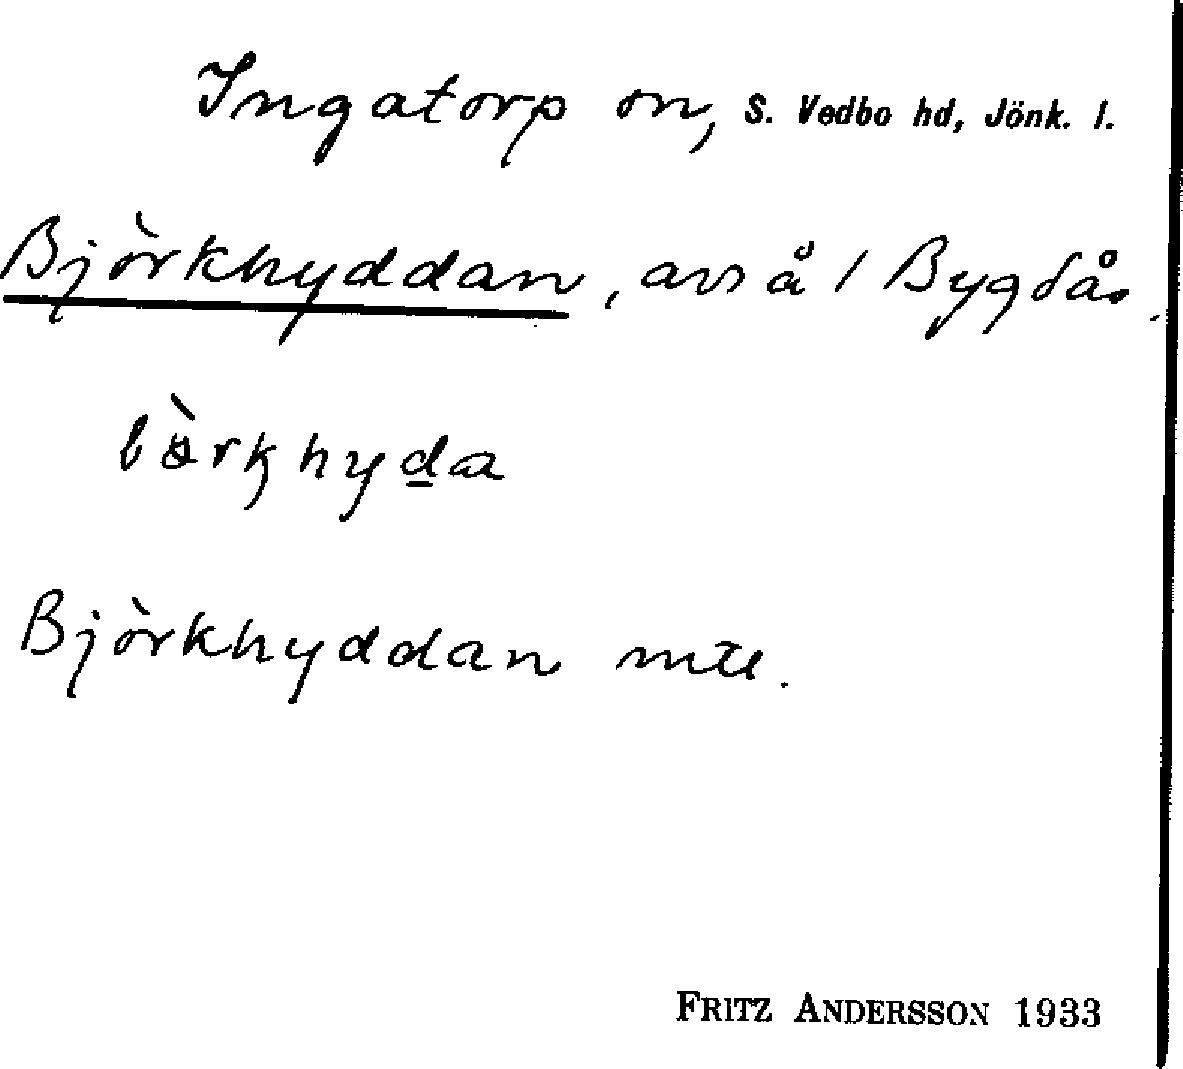 Ingatorp sn, S. Vedbo hd, Jönk. l.
Björkhyddan, avs å 1 Bygdås.
Björkhyddan mtl.
FRITZ ANDERSSON 1933